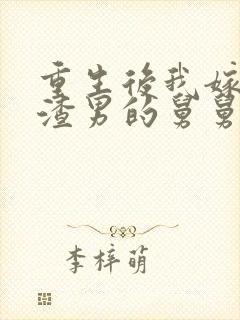 重生後我嫁
渣男的舅舅
李梓萌